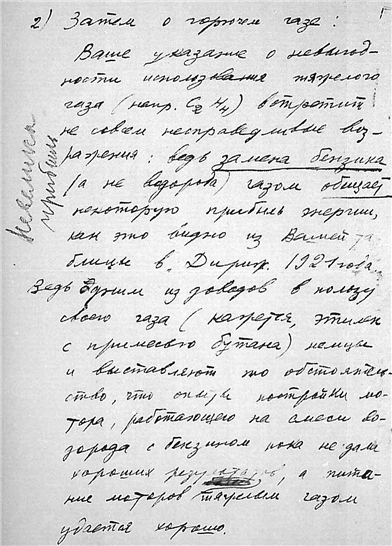 2) Затем о горючем газе:
Ваше указание о невыгод-
ности использования тяжелого
газа (напр. C2 H4) встретит
не совсем несправедливые воз-
ражения: ведь замена бензина
(а не водорода) газом обещает
некоторую прибыль энергии,
как это видно из Вашей та-
блицы в "Дириж. 1921 года.
Ведь одним из доводов в пользу
своего газа (кажется, этилен
с примесью бутана) немцы
и выставляют то обстоятель-
ство, что опыты постройки мо-
тора, работающего на смеси во-
дорода с бензином пока не дали
хороших результатов, а пита-
ние моторов тяжелым газом
удается хорошо.
Невелика
прибыль